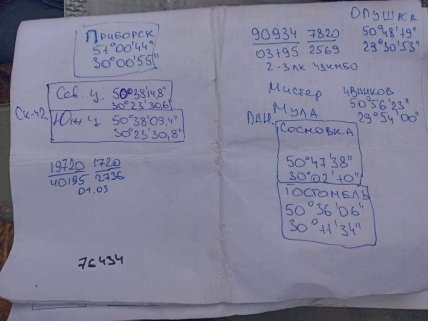 ПРИБОРСК
51°00'44"
30°00'55"
Сев. ц. 50°38'14,8"
30°23'30,6"
СК-42
Южн ц. 50°38'09,4"
30°23'30,8"
19720 1720
40195 2736
01.03
76434
ОПУШКА
90934 7820 50°48'19"
03195 2569 29°30'53"
Мистер
50°56'23"
Мула 29°54'00"
СОСНОВКА
50°47'38"
30°02'10"
ГОСТОМЕЛЬ
50°36'06"
30°11'34"